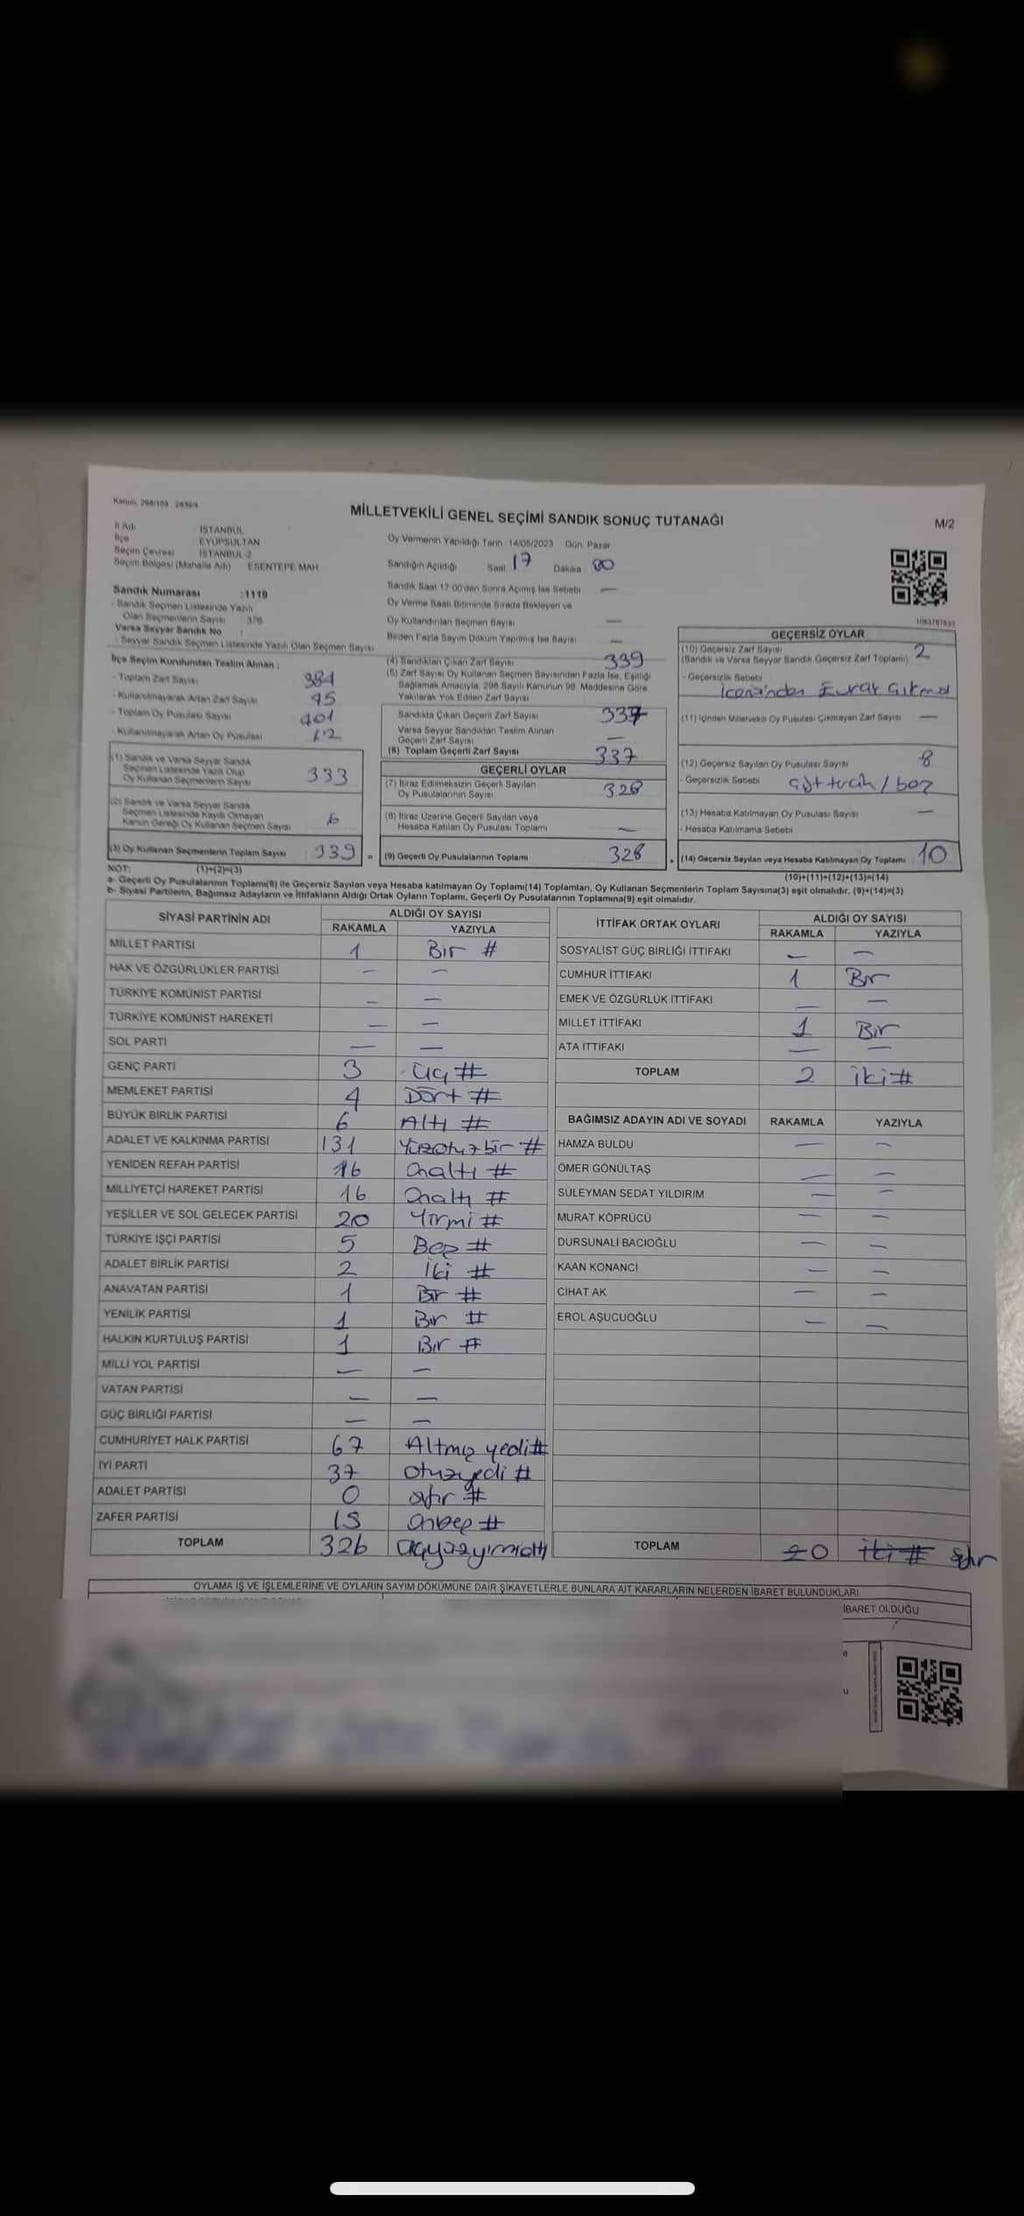 Kanun: 298/105 - 2839/4
MİLLETVEKİLİ GENEL SEÇİMİ SANDIK SONUÇ TUTANAĞI
M/2
İl Adı İSTANBUL
İlçe EYÜPSULTAN
Seçim Çevresi İSTANBUL-2
Seçim Bölgesi (Mahalle Adı) ESENTEPE MAH
Sandık Numarası :1119
- Sandık Seçmen Listesinde Yazılı
Olan Seçmenlerin Sayısı 376
Varsa Seyyar Sandık No :
- Seyyar Sandık Seçmen Listesinde Yazılı Olan Seçmen Sayısı
İlçe Seçim Kurulundan Teslim Alınan :
- Toplam Zarf Sayısı 384
- Kullanılmayarak Artan Zarf Sayısı 45
- Toplam Oy Pusulası Sayısı 401
- Kullanılmayarak Artan Oy Pusulası 62
(1) Sandık ve Varsa Seyyar Sandık
Seçmen Listesinde Yazılı Olup
Oy Kullanan Seçmenlerin Sayısı 333
(2) Sandık ve Varsa Seyyar Sandık
Seçmen Listesinde Kayıtlı Olmayan
Kanun Gereği Oy Kullanan Seçmen Sayısı 6
(3) Oy Kullanan Seçmenlerin Toplam Sayısı 339
Oy Vermenin Yapıldığı Tarih :14/05/2023 Gün: Pazar
Sandığın Açıldığı Saat 17 Dakika 00
Sandık Saat 17.00'den Sonra Açılmış İse Sebebi —
Oy Verme Saati Bitiminde Sırada Bekleyen ve
Oy Kullandırılan Seçmen Sayısı —
Birden Fazla Sayım Döküm Yapılmış İse Sayısı —
(4) Sandıktan Çıkan Zarf Sayısı 339
(5) Zarf Sayısı Oy Kullanan Seçmen Sayısından Fazla İse, Eşitliği
Sağlamak Amacıyla, 298 Sayılı Kanunun 98. Maddesine Göre
Yakılarak Yok Edilen Zarf Sayısı
Sandıkta Çıkan Geçerli Zarf Sayısı 337
Varsa Seyyar Sandıktan Teslim Alınan
Geçerli Zarf Sayısı —
(6) Toplam Geçerli Zarf Sayısı 337
GEÇERLİ OYLAR
(7) İtiraz Edilmeksizin Geçerli Sayılan
Oy Pusulalarının Sayısı 328
(8) İtiraz Üzerine Geçerli Sayılan veya
Hesaba Katılan Oy Pusulası Toplamı —
= (9) Geçerli Oy Pusulalarının Toplamı 328
1083787633
GEÇERSİZ OYLAR
(10) Geçersiz Zarf Sayısı 2
(Sandık ve Varsa Seyyar Sandık Geçersiz Zarf Toplamı)
- Geçersizlik Sebebi
İçerisinden Evrak Çıkması
(11) İçinden Milletvekili Oy Pusulası Çıkmayan Zarf Sayısı —
(12) Geçersiz Sayılan Oy Pusulası Sayısı 8
- Geçersizlik Sebebi çift tercih / boş
(13) Hesaba Katılmayan Oy Pusulası Sayısı —
- Hesaba Katılmama Sebebi
+ (14) Geçersiz Sayılan veya Hesaba Katılmayan Oy Toplamı 10
NOT: (1)+(2)=(3) (10)+(11)+(12)+(13)=(14)
a- Geçerli Oy Pusulalarının Toplamı(9) ile Geçersiz Sayılan veya Hesaba katılmayan Oy Toplamı(14) Toplamları, Oy Kullanan Seçmenlerin Toplam Sayısına(3) eşit olmalıdır. (9)+(14)=(3)
b- Siyasi Partilerin, Bağımsız Adayların ve İttifakların Aldığı Ortak Oyların Toplamı, Geçerli Oy Pusulalarının Toplamına(9) eşit olmalıdır.
SİYASİ PARTİNİN ADI ALDIĞI OY SAYISI
RAKAMLA YAZIYLA
MİLLET PARTİSİ 1 Bir #
HAK VE ÖZGÜRLÜKLER PARTİSİ — —
TÜRKİYE KOMÜNİST PARTİSİ — —
TÜRKİYE KOMÜNİST HAREKETİ — —
SOL PARTİ — —
GENÇ PARTİ 3 Üç #
MEMLEKET PARTİSİ 4 Dört #
BÜYÜK BİRLİK PARTİSİ 6 Altı #
ADALET VE KALKINMA PARTİSİ 131 Yüzotuzbir #
YENİDEN REFAH PARTİSİ 16 Onaltı #
MİLLİYETÇİ HAREKET PARTİSİ 16 Onaltı #
YEŞİLLER VE SOL GELECEK PARTİSİ 20 Yirmi #
TÜRKİYE İŞÇİ PARTİSİ 5 Beş #
ADALET BİRLİK PARTİSİ 2 İki #
ANAVATAN PARTİSİ 1 Bir #
YENİLİK PARTİSİ 1 Bir #
HALKIN KURTULUŞ PARTİSİ 1 Bir #
MİLLİ YOL PARTİSİ — —
VATAN PARTİSİ — —
GÜÇ BİRLİĞİ PARTİSİ — —
CUMHURİYET HALK PARTİSİ 67 Altmış yedi #
İYİ PARTİ 37 Otuzyedi #
ADALET PARTİSİ 0 sıfır #
ZAFER PARTİSİ 15 Onbeş #
TOPLAM 326 Üçyüzyirmialtı
İTTİFAK ORTAK OYLARI ALDIĞI OY SAYISI
RAKAMLA YAZIYLA
SOSYALİST GÜÇ BİRLİĞİ İTTİFAKI — —
CUMHUR İTTİFAKI 1 Bir
EMEK VE ÖZGÜRLÜK İTTİFAKI — —
MİLLET İTTİFAKI 1 Bir
ATA İTTİFAKI — —
TOPLAM 2 İki #
BAĞIMSIZ ADAYIN ADI VE SOYADI RAKAMLA YAZIYLA
HAMZA BULDU — —
ÖMER GÖNÜLTAŞ — —
SÜLEYMAN SEDAT YILDIRIM — —
MURAT KÖPRÜCÜ — —
DURSUNALİ BACIOĞLU — —
KAAN KONANCİ — —
CİHAT AK — —
EROL AŞUCUOĞLU — —
TOPLAM 2 0 İki # sıfır
OYLAMA İŞ VE İŞLEMLERİNE VE OYLARIN SAYIM DÖKÜMÜNE DAİR ŞİKAYETLERLE BUNLARA AİT KARARLARIN NELERDEN İBARET BULUNDUKLARI
İBARET OLDUĞU